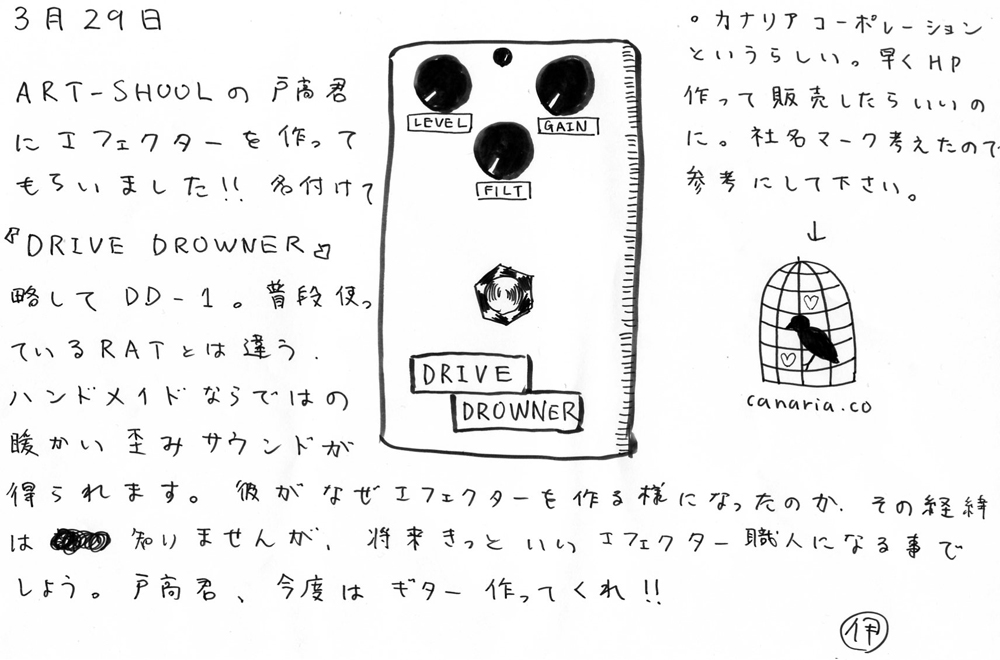 3月29日
ART-SHOOLの戸高君
にエフェクターを作って
もらいました!! 名付けて
『DRIVE DROWNER』
略してDD-1。普段使っ
ているRATとは違う.
ハンドメイドならではの
暖かい歪みサウンドが
得られます。彼がなぜエフェクターを作る様になったのか、その経緯
は 知りませんが、将来きっといいエフェクター職人になる事で
しょう。戸高君、今度はギター作ってくれ!!
LEVEL
GAIN
FILT
DRIVE
DROWNER
。カナリアコーポレーション
というらしい。早くHP
作って販売したらいいの
に。社名マーク考えたので
参考にして下さい。
↓
canaria.co
伊